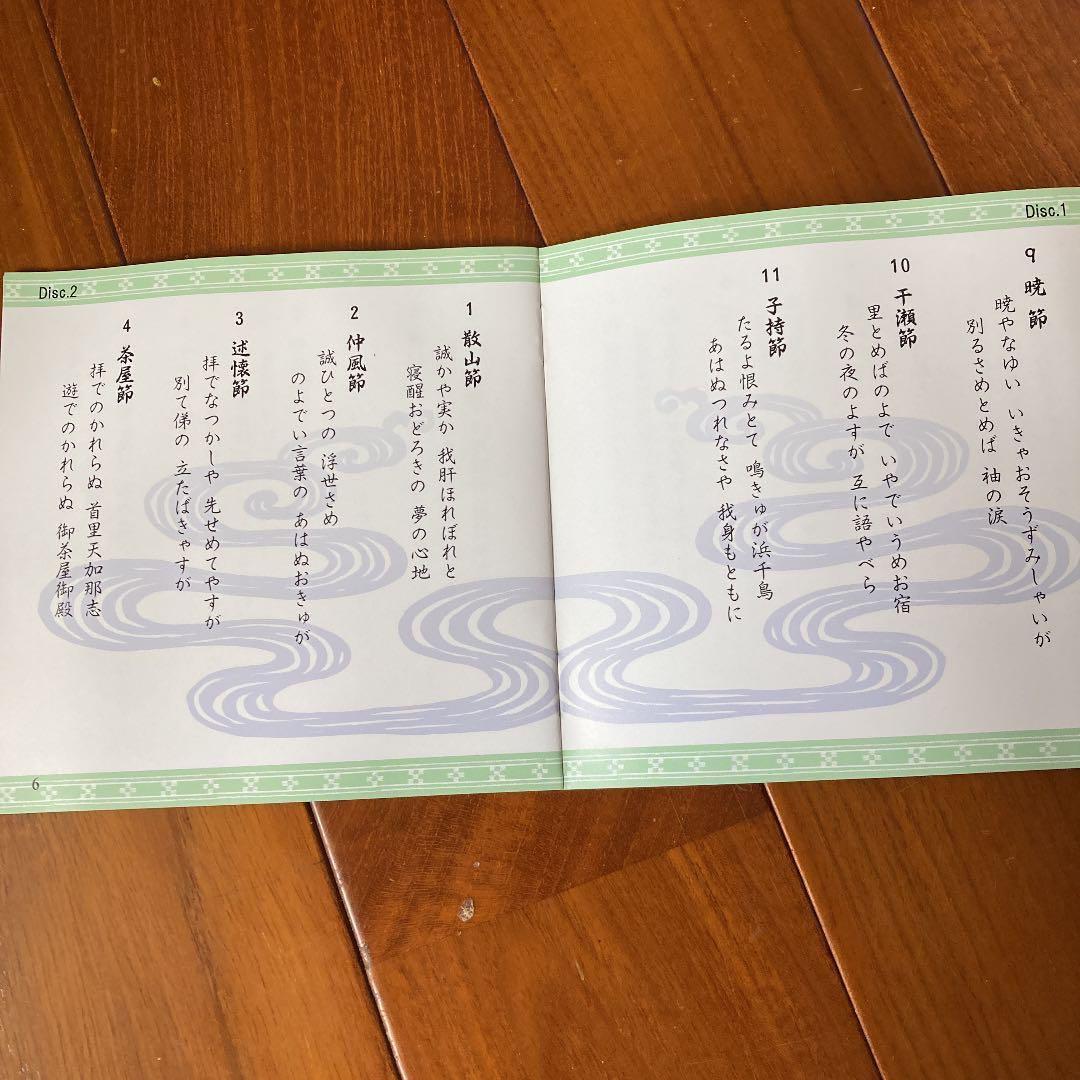 Disc.1
9 暁節
暁やなゆい いきゃおそうずみしゃいが
別るさめとめば 袖の涙
10 干瀬節
里とめばのよで いやでいうめお宿
冬の夜のよすが 互に語やべら
11 子持節
たるよ恨みとて 鳴きゅが浜千鳥
あはぬつれなさや 我身もともに
Disc.2
1 散山節
誠かや実か 我肝ほれぼれと
寝醒おどろきの 夢の心地
2 仲風節
誠ひとつの 浮世さめ
のよでい言葉の あはぬおきゅが
3 述懐節
拝でなつかしや 先せめてやすが
別て俤の 立たばきゃすが
4 茶屋節
拝でのかれらぬ 首里天加那志
遊でのかれらぬ 御茶屋御殿
6